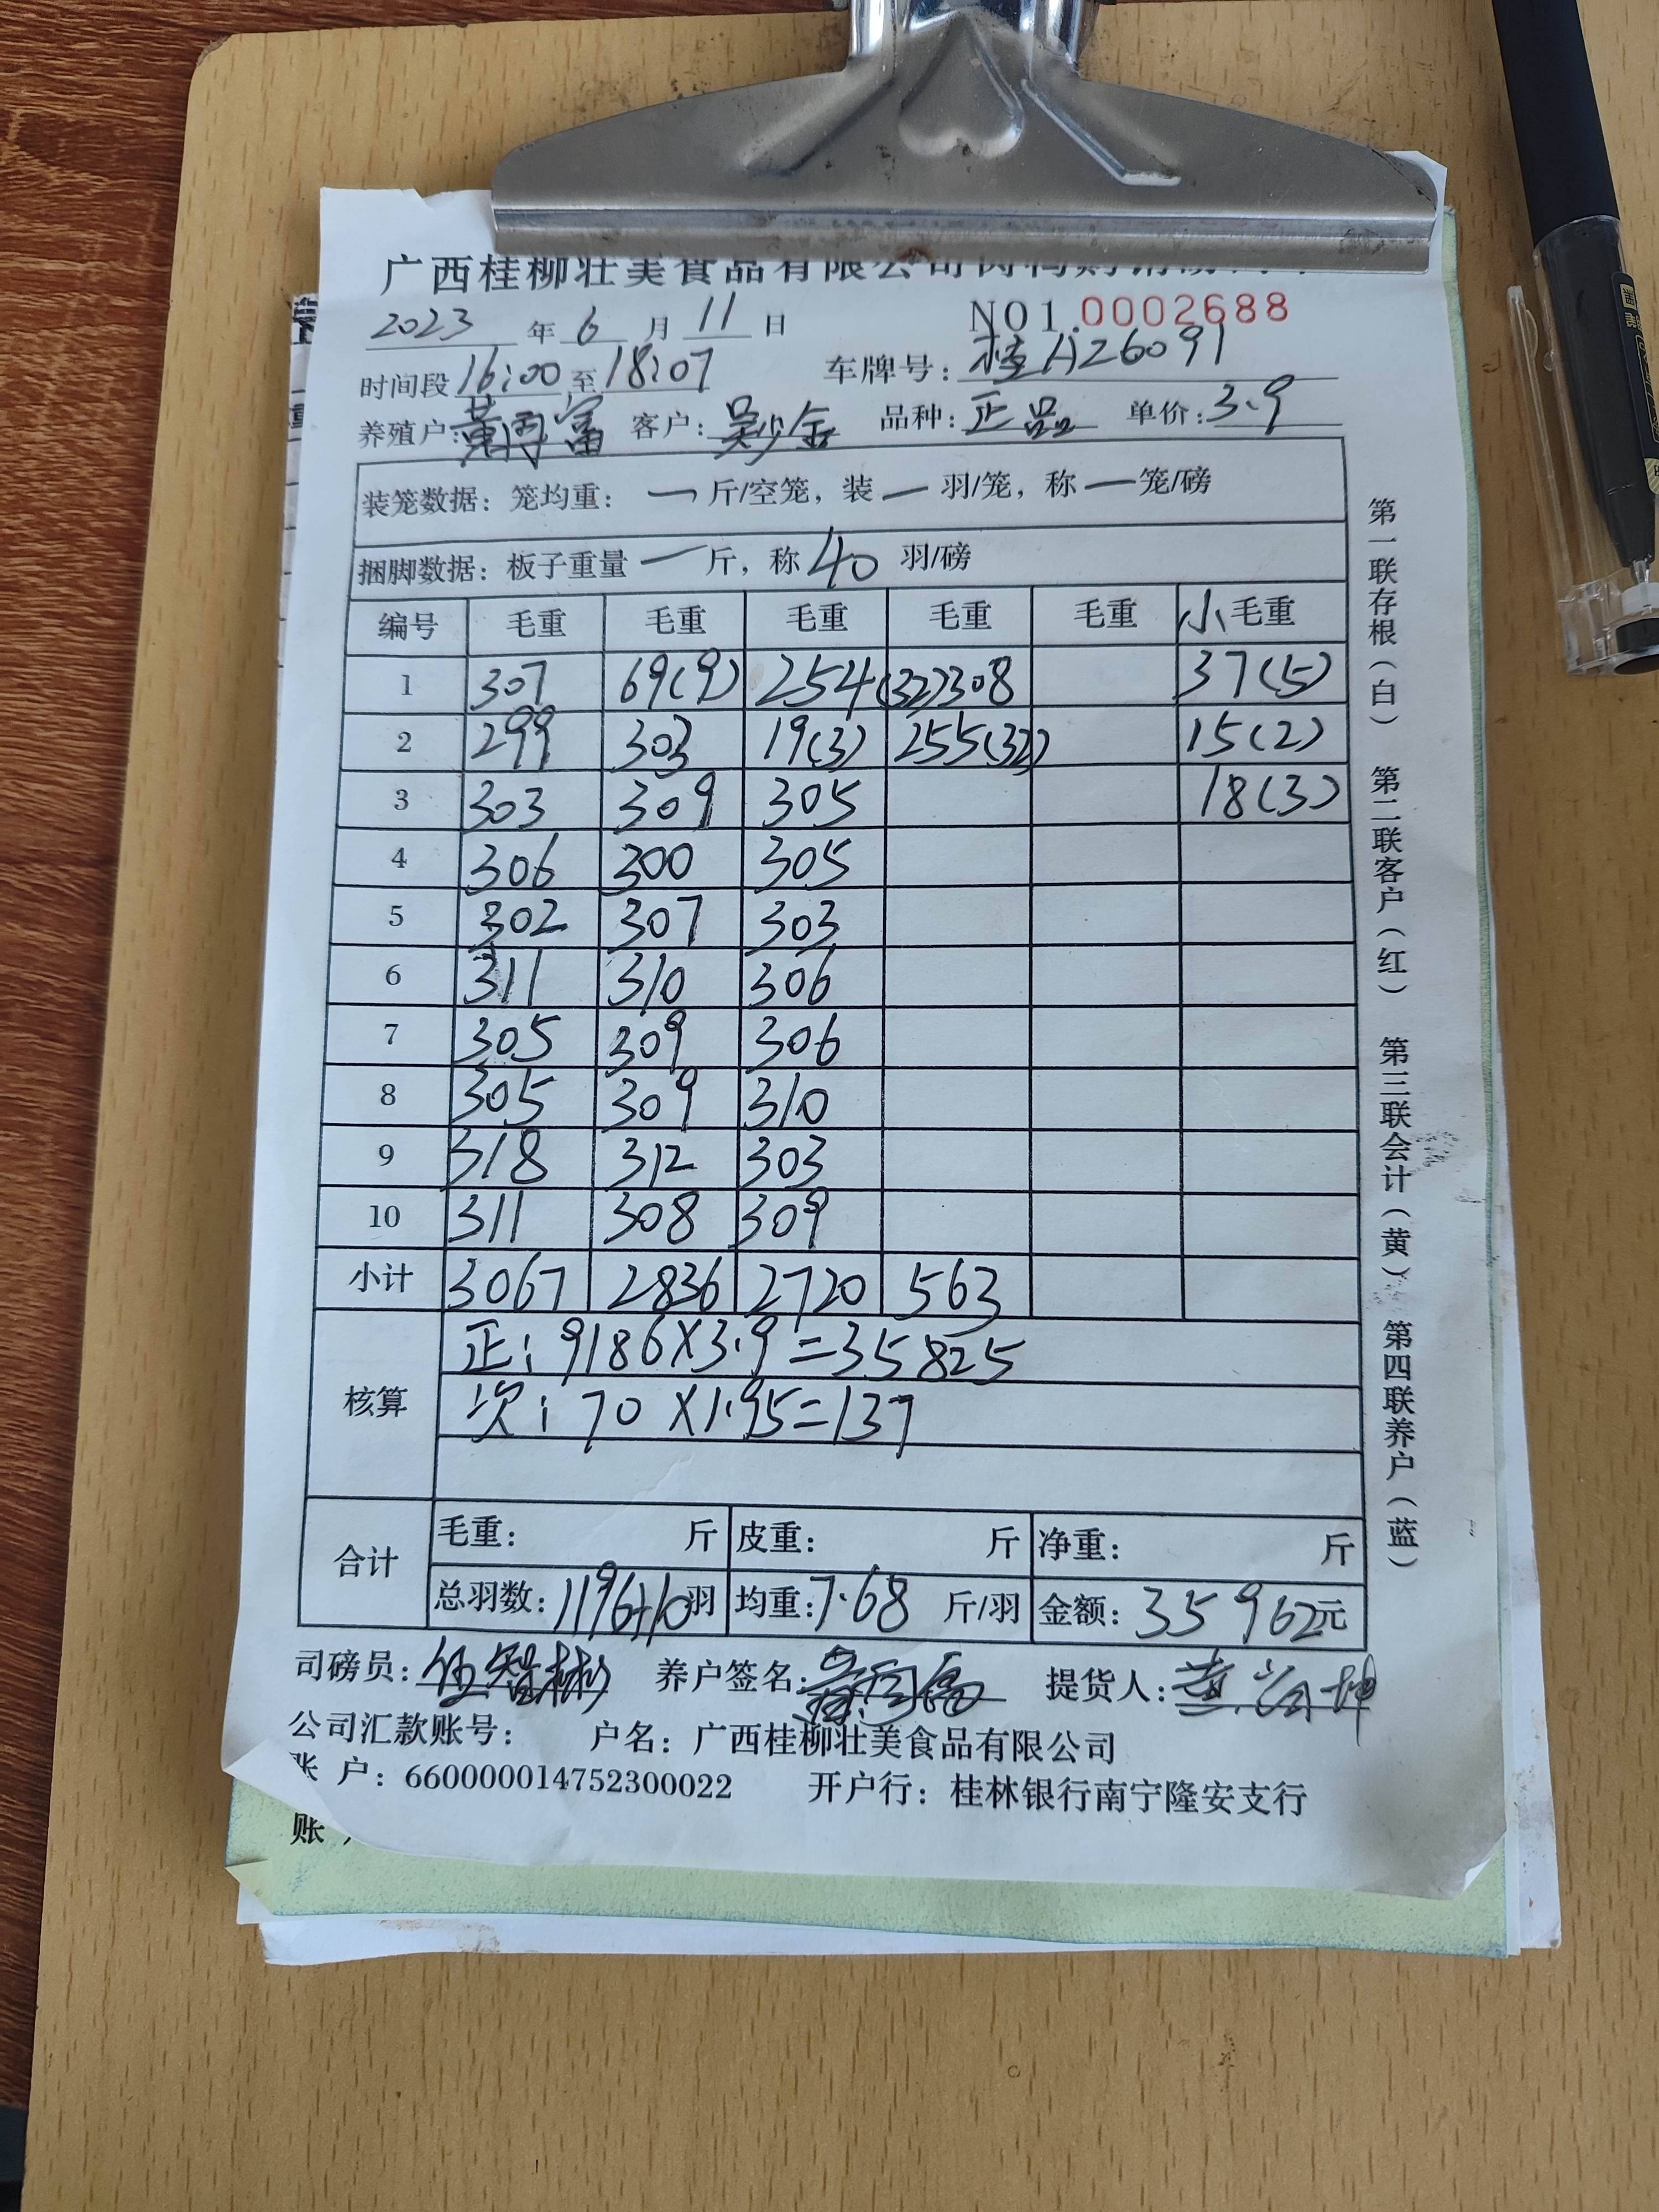 广西桂柳壮美食品有限公司肉鸭购销
2023 年 6 月 11 日 NO1.0002688
时间段 16:00 至 18:07 车牌号: 桂A26091
养殖户: 黄再富 客户: 吴少金 品种: 正品 单价: 3.9
装笼数据: 笼均重: 一 斤/空笼, 装 一 羽/笼, 称 一 笼/磅
捆脚数据: 板子重量 一 斤, 称 40 羽/磅
编号 毛重 毛重 毛重 毛重 毛重 小毛重
1 307 69(9) 254(32) 308 37(5)
2 299 303 19(3) 255(32) 15(2)
3 303 309 305 18(3)
4 306 300 305
5 302 307 303
6 311 310 306
7 305 309 306
8 305 309 310
9 318 312 303
10 311 308 309
小计 3067 2836 2720 563
核算
正: 9186×3.9=35825
次: 70×1.95=137
合计
毛重: 斤 皮重: 斤 净重: 斤
总羽数: 1196+10 羽 均重: 7.68 斤/羽 金额: 35962元
司磅员: 伍智彬 养户签名: 提货人:
公司汇款账号: 户名: 广西桂柳壮美食品有限公司
账 户: 660000014752300022 开户行: 桂林银行南宁隆安支行
账
第一联存根(白) 第二联客户(红) 第三联会计(黄) 第四联养户(蓝)